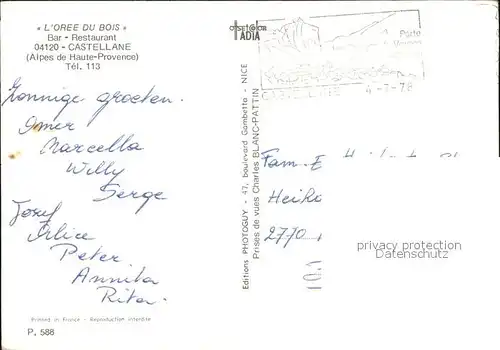 « L'OREE DU BOIS »
Bar - Restaurant
04120 - CASTELLANE
(Alpes de Haute-Provence)
Tél. 113
Zonnige groeten.
Omer
Marcella
Willy
Serge
Jozef
Alice
Peter
Annita
Rita.
Printed in France - Reproduction interdite
P. 588
Editions PHOTOGUY - 47, boulevard Gambetta - NICE
Prises de vues Charles BLANC-PATTIN
offset color
ADIA
Porte
CASTELLANE 4-7-78
Fam.
2770
privacy protection
Datenschutz